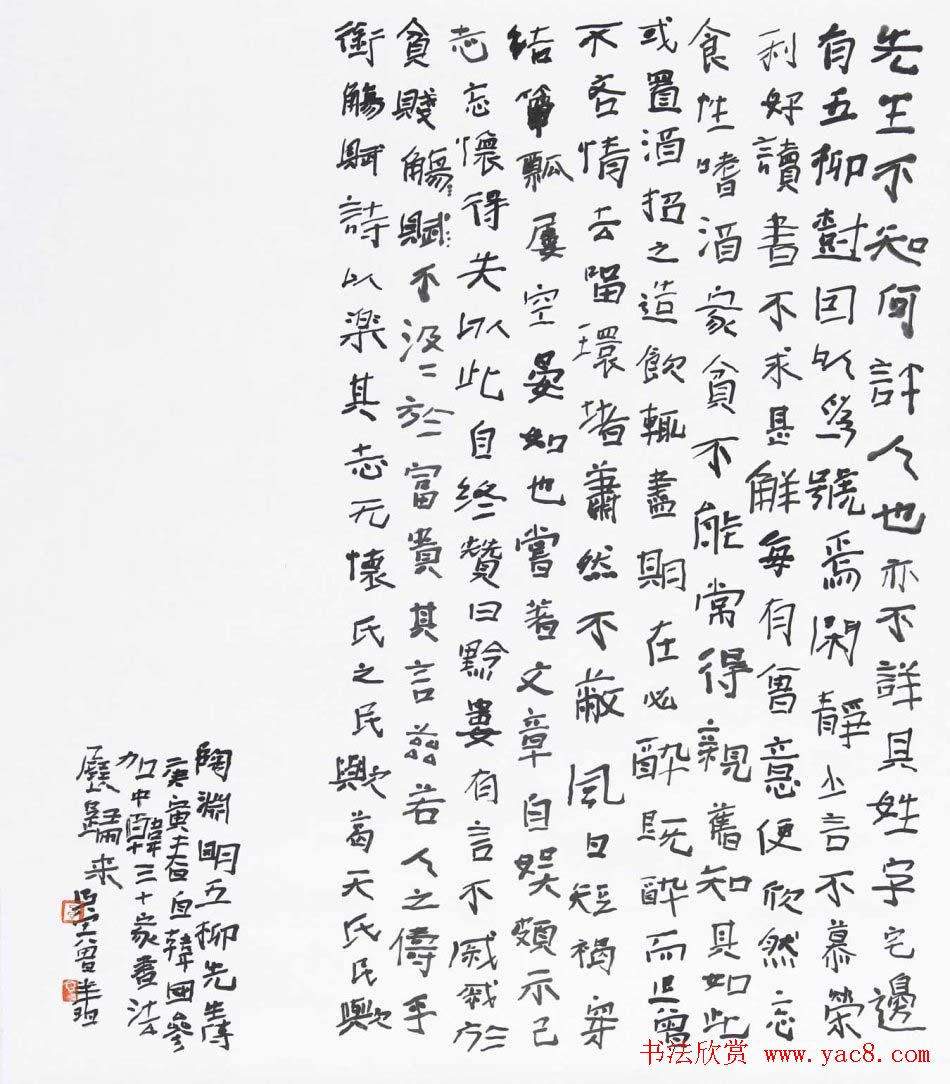 先生不知何許人也亦不詳其姓字宅邊
有五柳樹因以為號焉閑靜少言不慕榮
利好讀書不求甚解每有會意便欣然忘
食性嗜酒家貧不能常得親舊知其如此
或置酒招之造飲輒盡期在必醉既醉而退曾
不吝情去留環堵蕭然不蔽風日短褐穿
結簞瓢屢空晏如也嘗著文章自娛頗示己
志忘懷得失以此自終贊曰黔婁有言不戚戚於
貧賤觴賦不汲汲於富貴其言茲若人之儔乎
銜觴賦詩以楽其志无懷氏之民歟葛天氏民歟
陶淵明五柳先生傳
庚寅春自韓國參
加中韓三十家書法
展歸来
书法欣赏 www.yac8.com